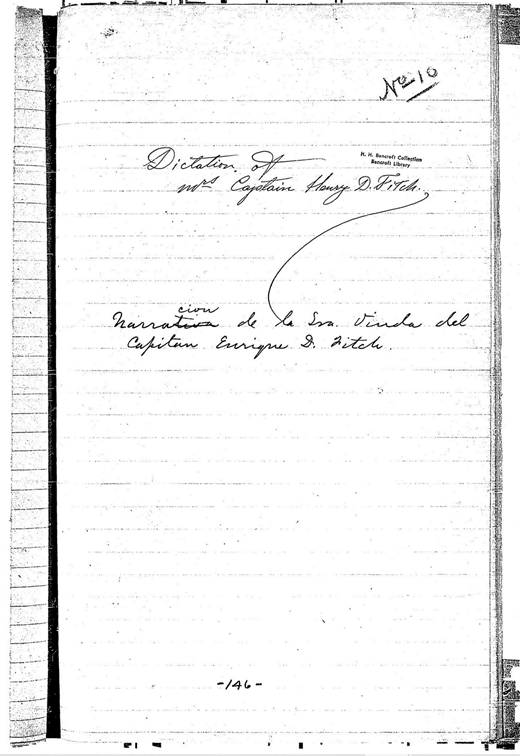 No 10
H. H. Bancroft Collection
Bancroft Library
Dictation of
Mrs Captain Henry D. Fitch.
cion
Narrativa de la Sra. Viuda del
Capitan Enrique D. Fitch.
-146-